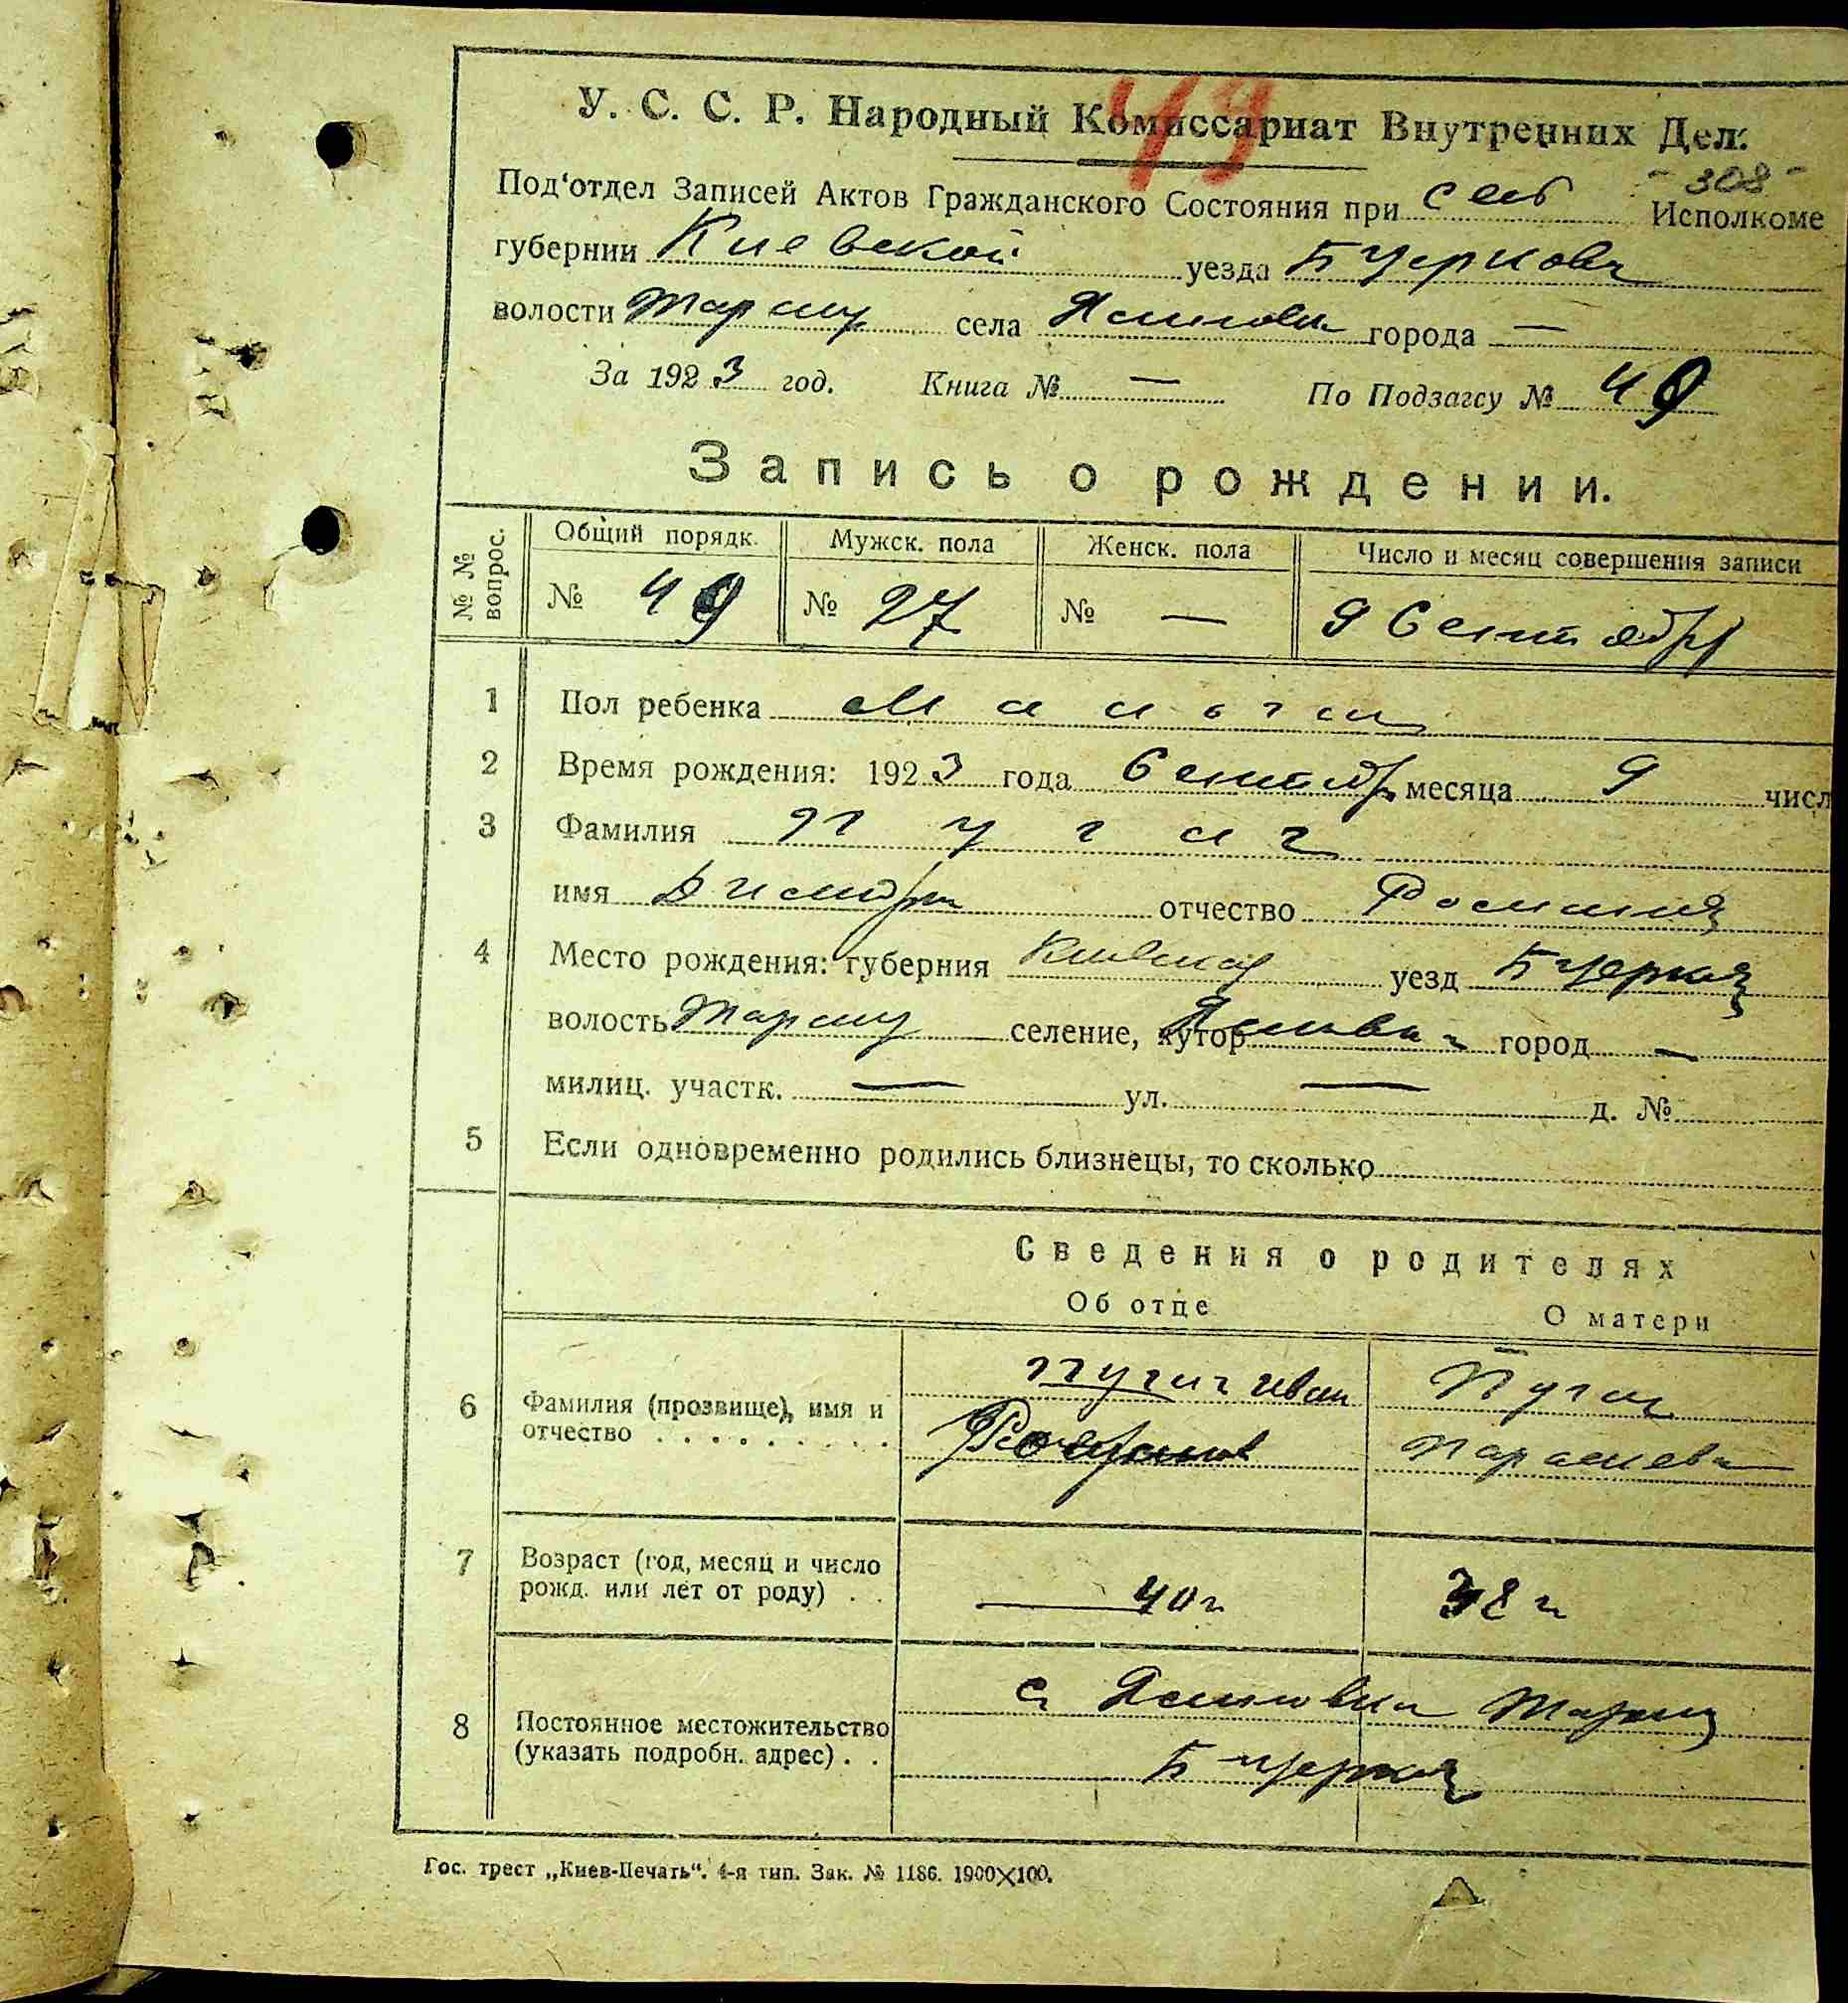 49
У. С. С. Р. Народный Комиссариат Внутренних Дел.
- 308 -
Под'отдел Записей Актов Гражданского Состояния при сель Исполкоме
губернии Киевской уезда Б Церковь
волости Таращ села Ясиновки города —
За 1923 год. Книга № — По Подзагсу № 49
Запись о рождении.
№ № вопрос. Общий порядк. Мужск. пола Женск. пола Число и месяц совершения записи
№ 49 № 27 № — 9 Сентября
1 Пол ребенка
2 Время рождения: 1923 года Сентябр месяца 9 числ
3 Фамилия Пугач
имя Димитри отчество
4 Место рождения: губерния Киевская уезд Б Церков
волость Таращ селение, хутор город —
милиц. участк. — ул. — д. №
5 Если одновременно родились близнецы, то сколько
Сведения о родителях
Об отце О матери
6 Фамилия (прозвище), имя и отчество . . . . . . . . .
Пугач Иван
Пугач
Параскева
7 Возраст (год, месяц и число рожд. или лет от роду) . . 40 г 38 г
8 Постоянное местожительство (указать подробн. адрес) . .
с. Ясиновки Таращ
Б Церков
Гос. трест „Киев-Печать“. 4-я тип. Зак. № 1186. 1900×100.